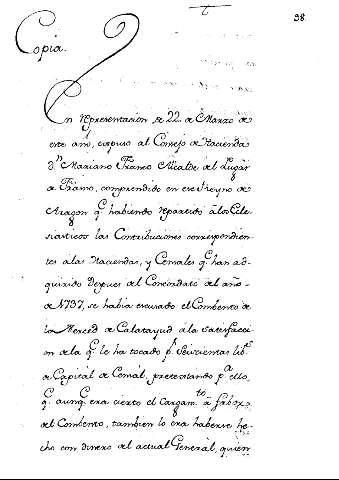 98.
Copia.
En representacion de 22. de Marzo de
este año, expuso al Consejo de Hacienda
Dⁿ Mariano Franco Alcalde del Lugar
de Frasno, comprendido en ese Reyno de
Aragon q.ᵉ habiendo repartido a los Ecle-
siasticos las Contribuciones correspondien-
tes a las Haciendas, y Censales q.ᵉ han ad-
quirido despues del Concordato del año
de 1737, se había escusado el Combento de
la Merced de Calatayud á la satisfacci-
on de la q.ᵉ le ha tocado p.ʳ Seiscientas lib.ˢ
de Capital de Censal, pretestando p.ᵃ ello,
q.ᵉ aunq.ᵉ era cierto el cargam.ᵗᵒ á fabor
del Combento, tambien lo era haberse he-
cho con dinero del actual General, quien